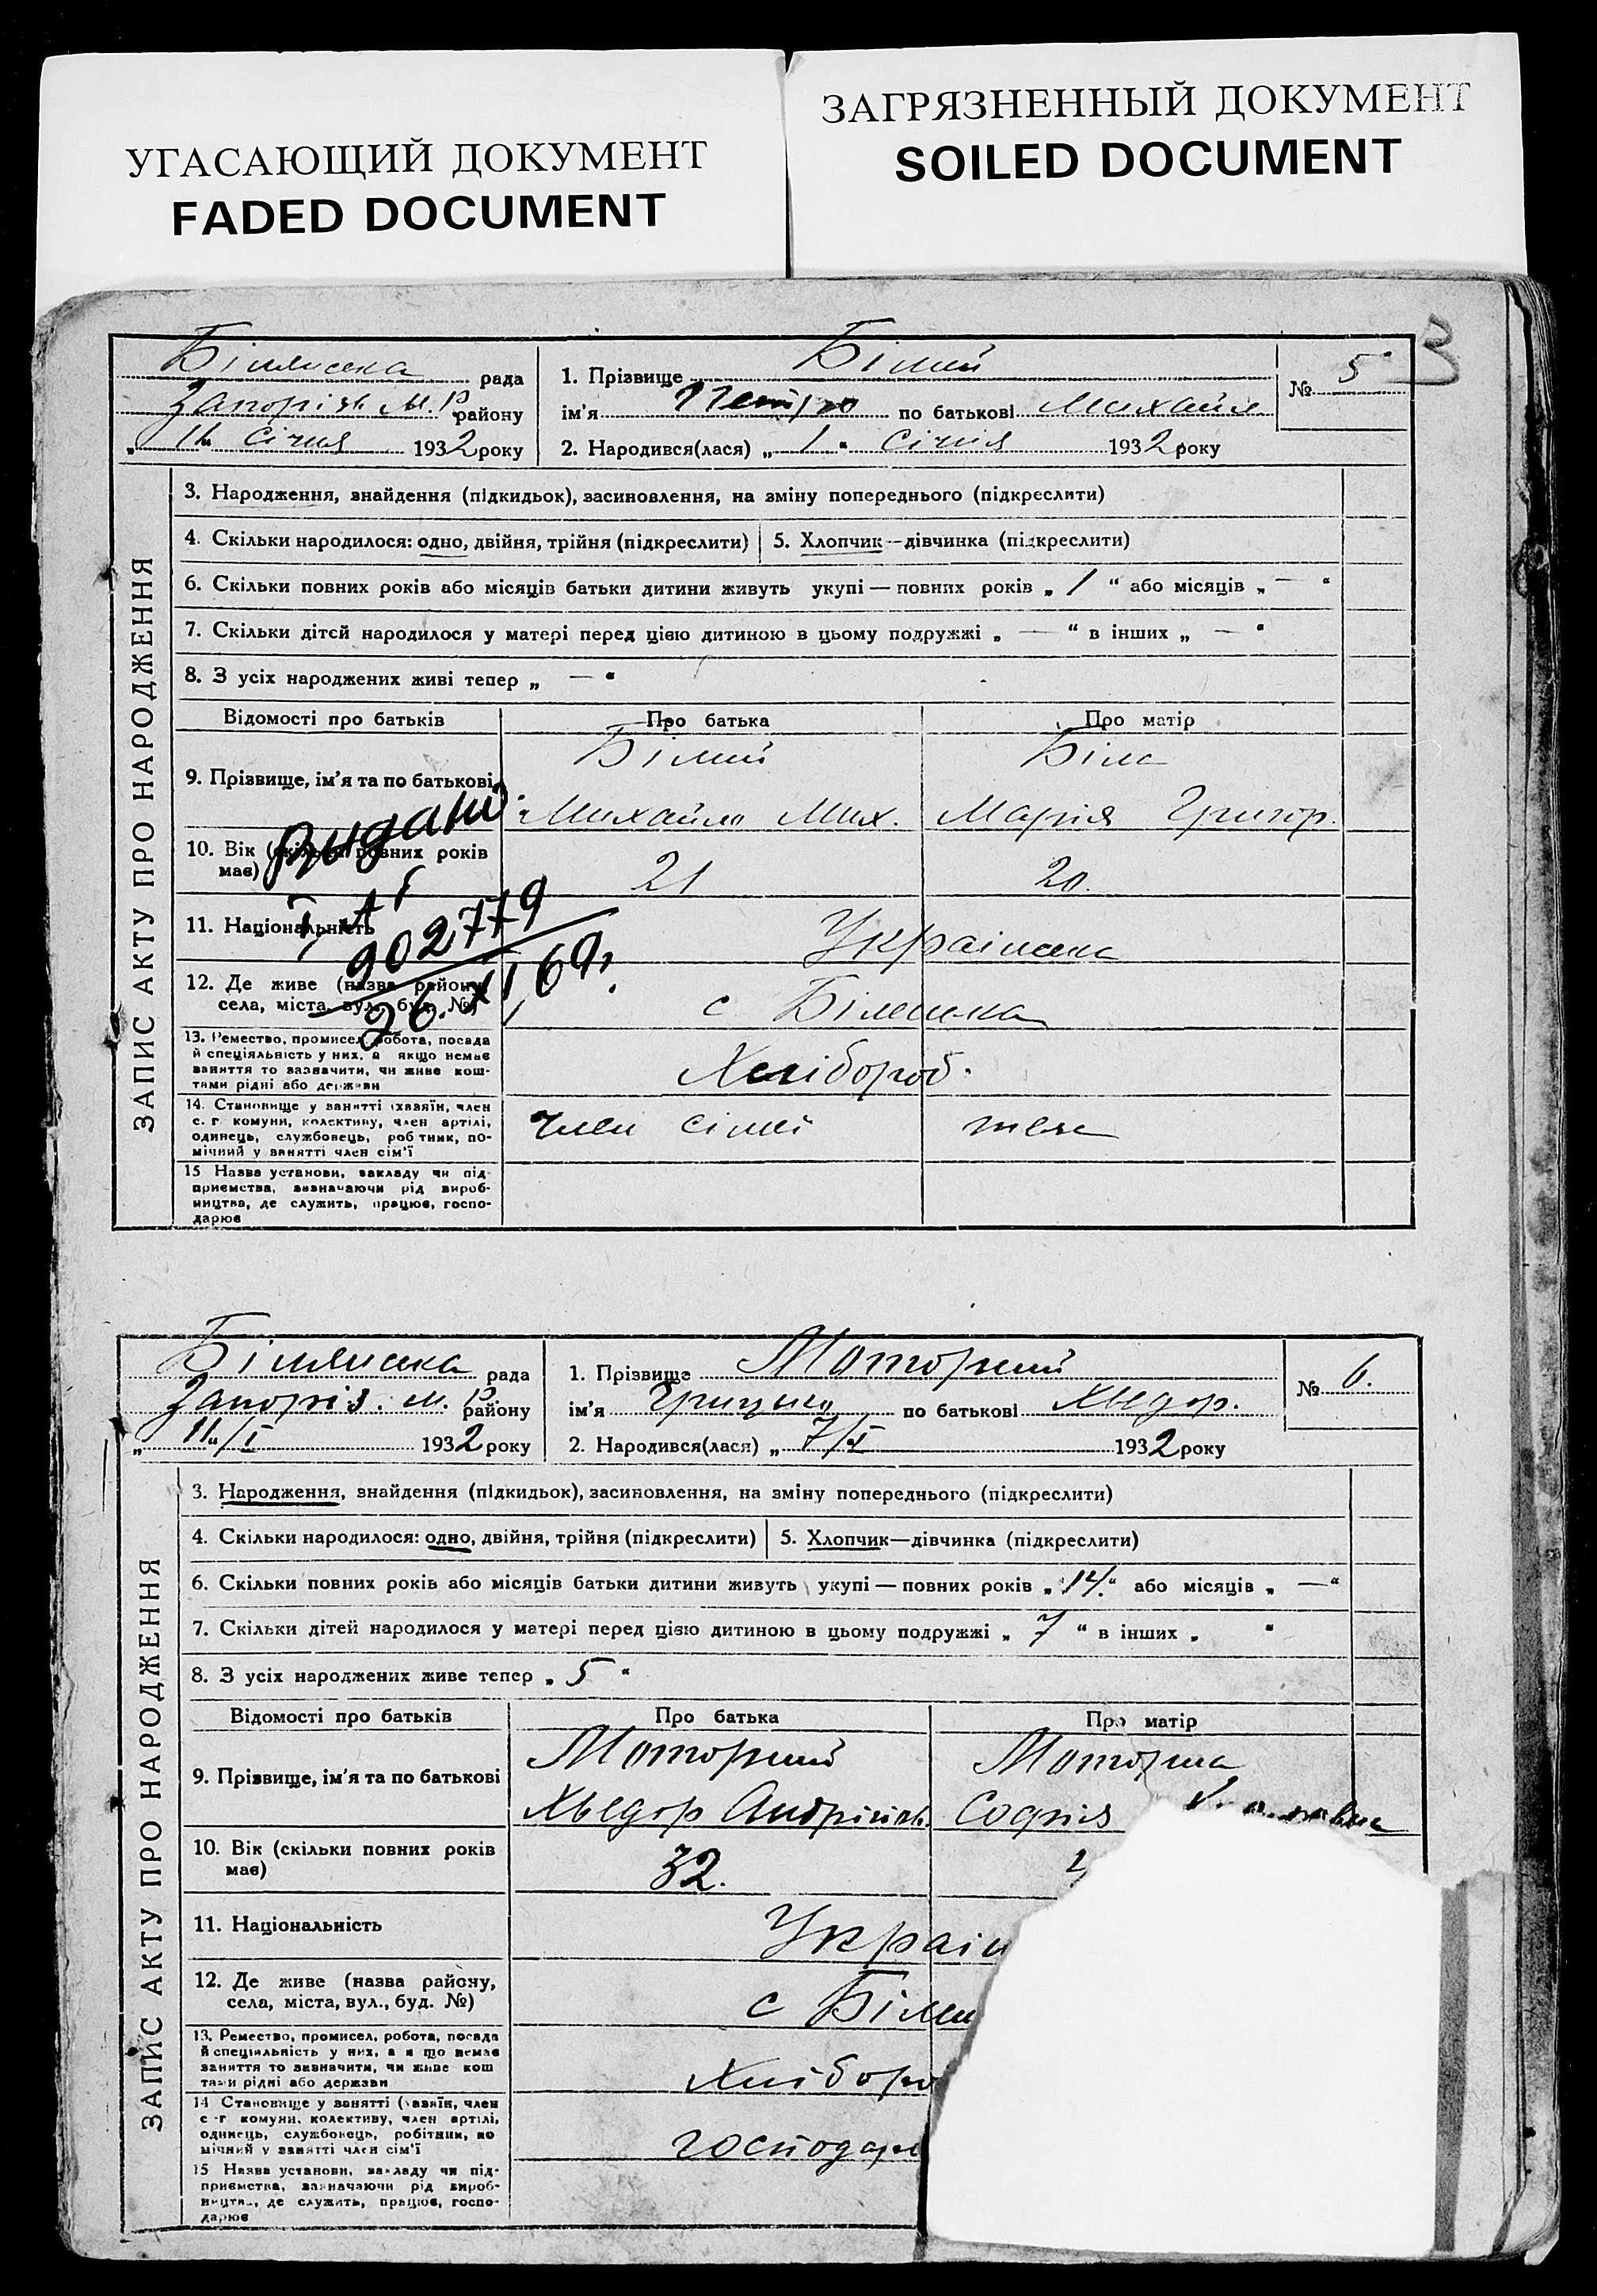 УГАСАЮЩИЙ ДОКУМЕНТ
FADED DOCUMENT
ЗАГРЯЗНЕННЫЙ ДОКУМЕНТ
SOILED DOCUMENT
3
рада
Запорізь М. Р. району
„11“ Січня 1932 року
1. Прізвище Білий
ім'я Петро по батькові Михайл
2. Народився(лася) „1“ Січня 1932 року
№ 5
ЗАПИС АКТУ ПРО НАРОДЖЕННЯ
3. Народження, знайдення (підкидьок), засиновлення, на зміну попереднього (підкреслити)
4. Скільки народилося: одно, двійня, трійня (підкреслити)
5. Хлопчик—дівчинка (підкреслити)
6. Скільки повних років або місяців батьки дитини живуть укупі — повних років „ 1 “ або місяців „ — “
7. Скільки дітей народилося у матері перед цією дитиною в цьому подружжі „ — “ в інших „ — “
8. З усіх народжених живі тепер „ — “
Відомості про батьків
Про батька
Про матір
9. Прізвище, ім'я та по батькові
Білий
Михайло Мих.
Біла
Марія Григор.
10. Вік (скільки повних років
має)
21
20.
видано
902779
26. XI 69г.
11. Національність
Українська
12. Де живе (назва району,
села, міста, вул., буд. №)
13. Ремество, промисел, робота, посада
й спеціяльність у них, а якщо немає
заняття то зазначити, чи живе кош-
тами рідні або держави
Хлібороб.
14. Становище у занятті (хазяїн, член
с.-г. комуни, колективу, член артілі,
одинець, службовець, робітник, по-
мічний у занятті член сім'ї
член сімї
теж
15 Назва установи, закладу чи під-
приємства, зазначаючи рід вироб-
ництва, де служить, працює, госпо-
дарює
рада
Запоріз. М. Р. району
„11“/I 1932 року
1. Прізвище Моторний
ім'я Грицько по батькові Хведор.
2. Народився(лася) „ 7/I 1932 року
№ 6.
ЗАПИС АКТУ ПРО НАРОДЖЕННЯ
3. Народження, знайдення (підкидьок), засиновлення, на зміну попереднього (підкреслити)
4. Скільки народилося: одно, двійня, трійня (підкреслити)
5. Хлопчик—дівчинка (підкреслити)
6. Скільки повних років або місяців батьки дитини живуть укупі — повних років „ 14. “ або місяців „ — “
7. Скільки дітей народилося у матері перед цією дитиною в цьому подружжі „ 7 “ в інших „ “
8. З усіх народжених живе тепер „ 5 “
Відомості про батьків
Про батька
Про матір
9. Прізвище, ім'я та по батькові
Моторний
Хведор Андрійов.
Моторна
Софія
10. Вік (скільки повних років
має)
32.
11. Національність
Україн
12. Де живе (назва району,
села, міста, вул., буд. №)
13. Ремество, промисел, робота, посада
й спеціяльність у них, а якщо немає
заняття то зазначити, чи живе кош
тами рідні або держави
Хліборо
14 Становище у занятті (хазяїн, член
с.-г комуни, колективу, член артілі,
одинець, службовець, робітник, по
мічний у занятті член сім'ї
господар
15 Назва установи, закладу чи під-
приємства, зазначаючи рід вироб-
ництва, де служить, працює, госпо-
дарює